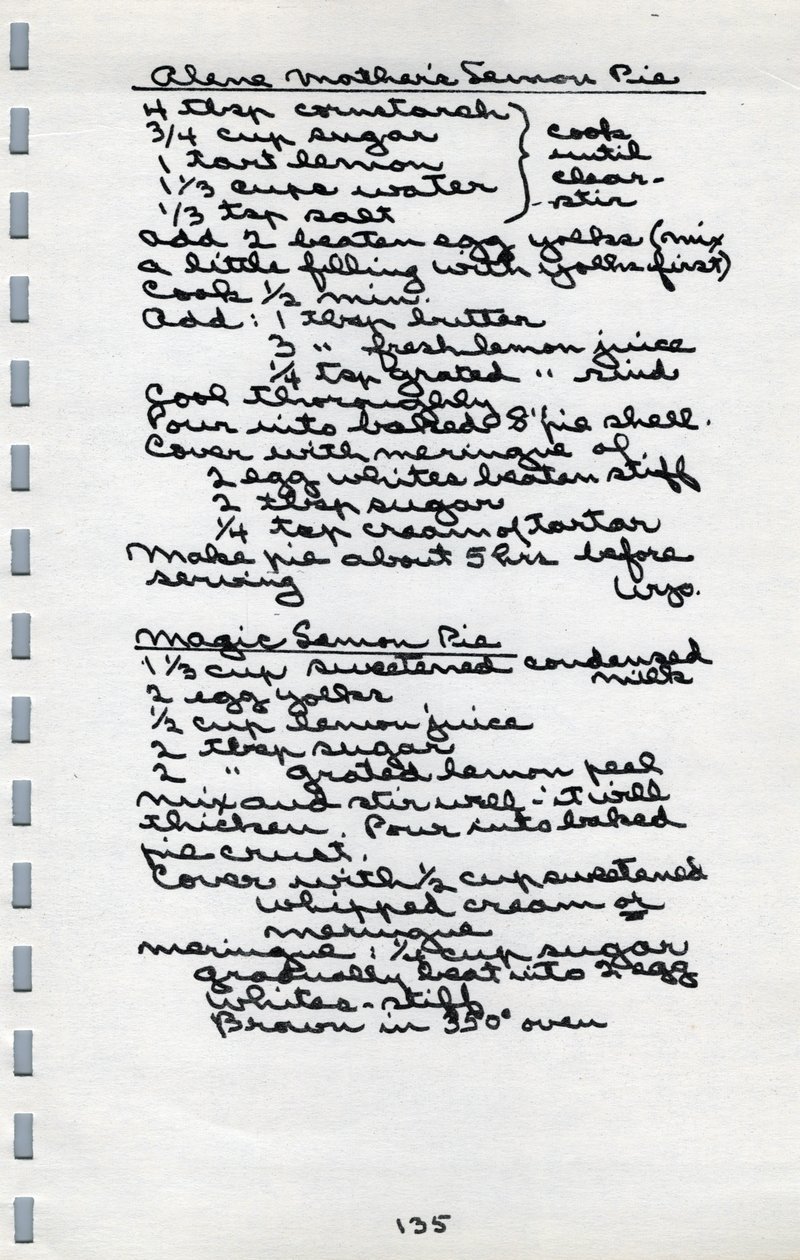 Alene Mother's Lemon Pie
4 tbsp cornstarch
3/4 cup sugar
1 tart lemon
1 1/3 cups water
1/3 tsp salt
cook
until
clear-
-stir
add 2 beaten egg yolks (mix
a little filling with yolks first)
Cook 1/2 min.
Add: 1 tbsp butter
3 " fresh lemon juice
1/4 tsp grated " rind
Cool thoroughly
Pour into baked 8" pie shell.
Cover with meringue of
2 egg whites beaten stiff
2 tbsp sugar
1/4 tsp cream of tartar
Make pie about 5 hrs before
serving Wyo.
Magic Lemon Pie
1 1/3 cup sweetened condensed
milk
2 egg yolks
1/2 cup lemon juice
2 tbsp sugar
2 " grated lemon peel
Mix and stir well - it will
thicken. Pour into baked
pie crust.
Cover with 1/2 cup sweetened
whipped cream or
meringue
meringue: 1/4 cup sugar
gradually beat into 2 egg
whites - stiff
Brown in 350° oven
135